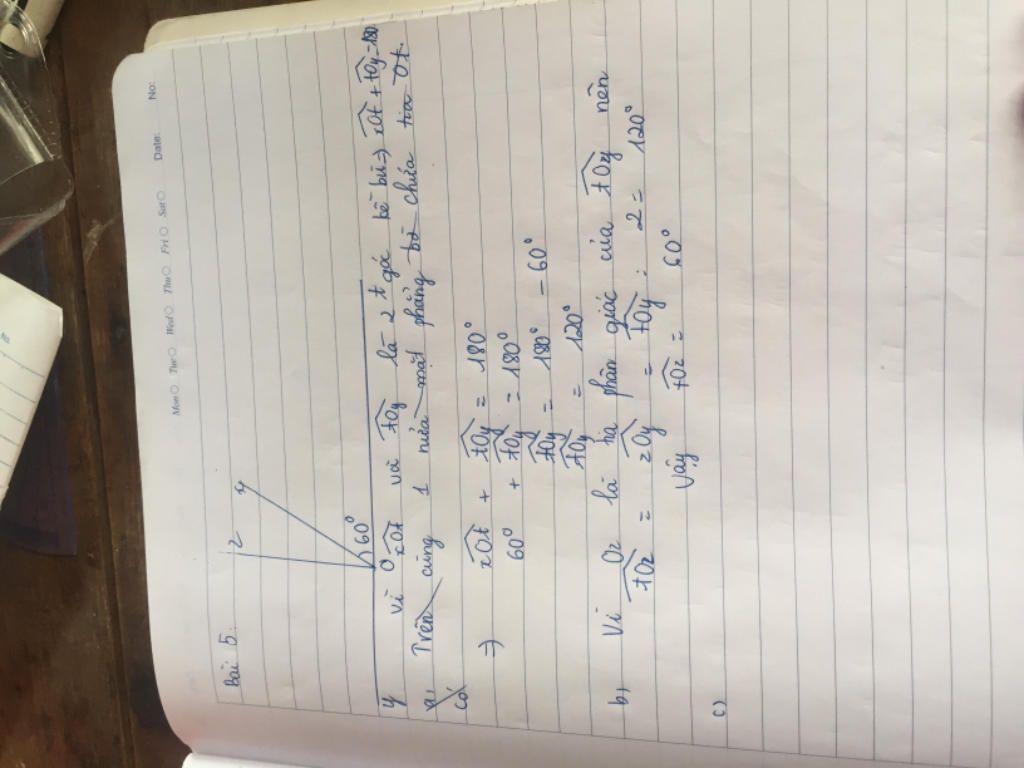 No:
Date:
Mon Tue Wed Thu Fri Sat
Bài 5:
z
t
O
60°
y
Vì xOt và tOy là 2 góc kề bù => xOt + tOy = 180
a, Trên cùng 1 nửa mặt phẳng bờ chứa tia Ot
Có
=> xOt + tOy = 180°
60° + tOy = 180°
tOy = 180° - 60°
tOy = 120°
b, Vì Oz là tia phân giác của tOy nên
tOz = zOy = tOy : 2 = 120°
Vậy tOz = 60°
c)